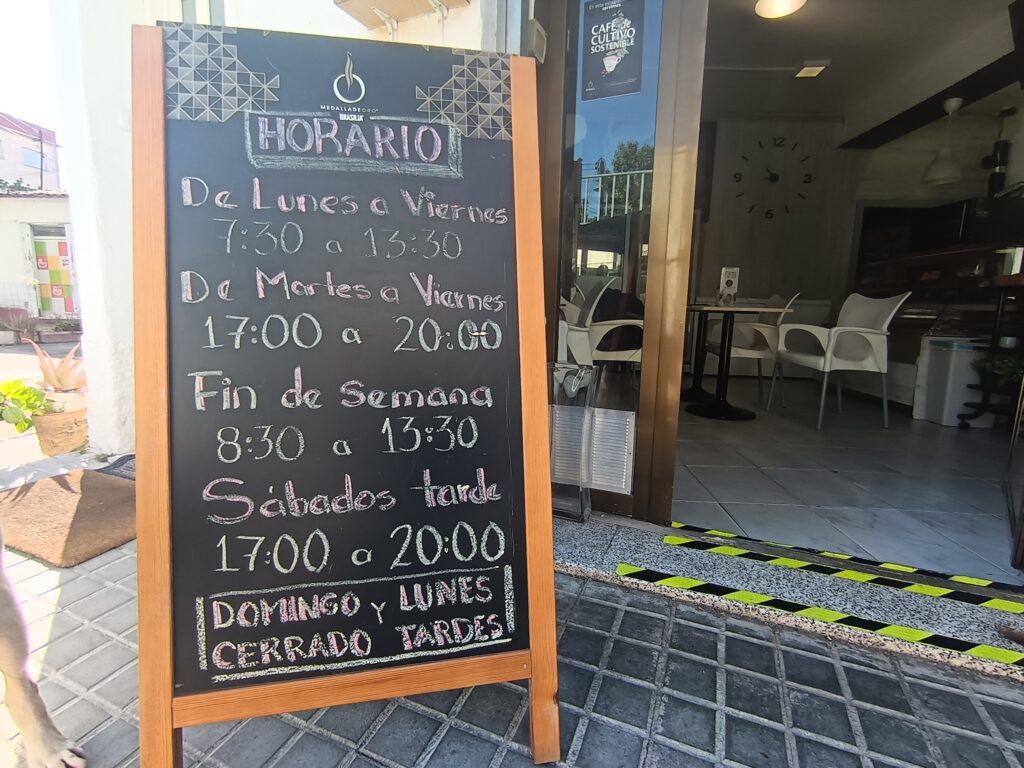 MEDALLA DE ORO
BRASILIA
HORARIO
De Lunes a Viernes
7:30 a 13:30
De Martes a Viernes
17:00 a 20:00
Fin de Semana
8:30 a 13:30
Sábados tarde
17:00 a 20:00
DOMINGO Y LUNES
CERRADO TARDES
CAFÉ de
CULTIVO
SOSTENIBLE
12
3
6
9